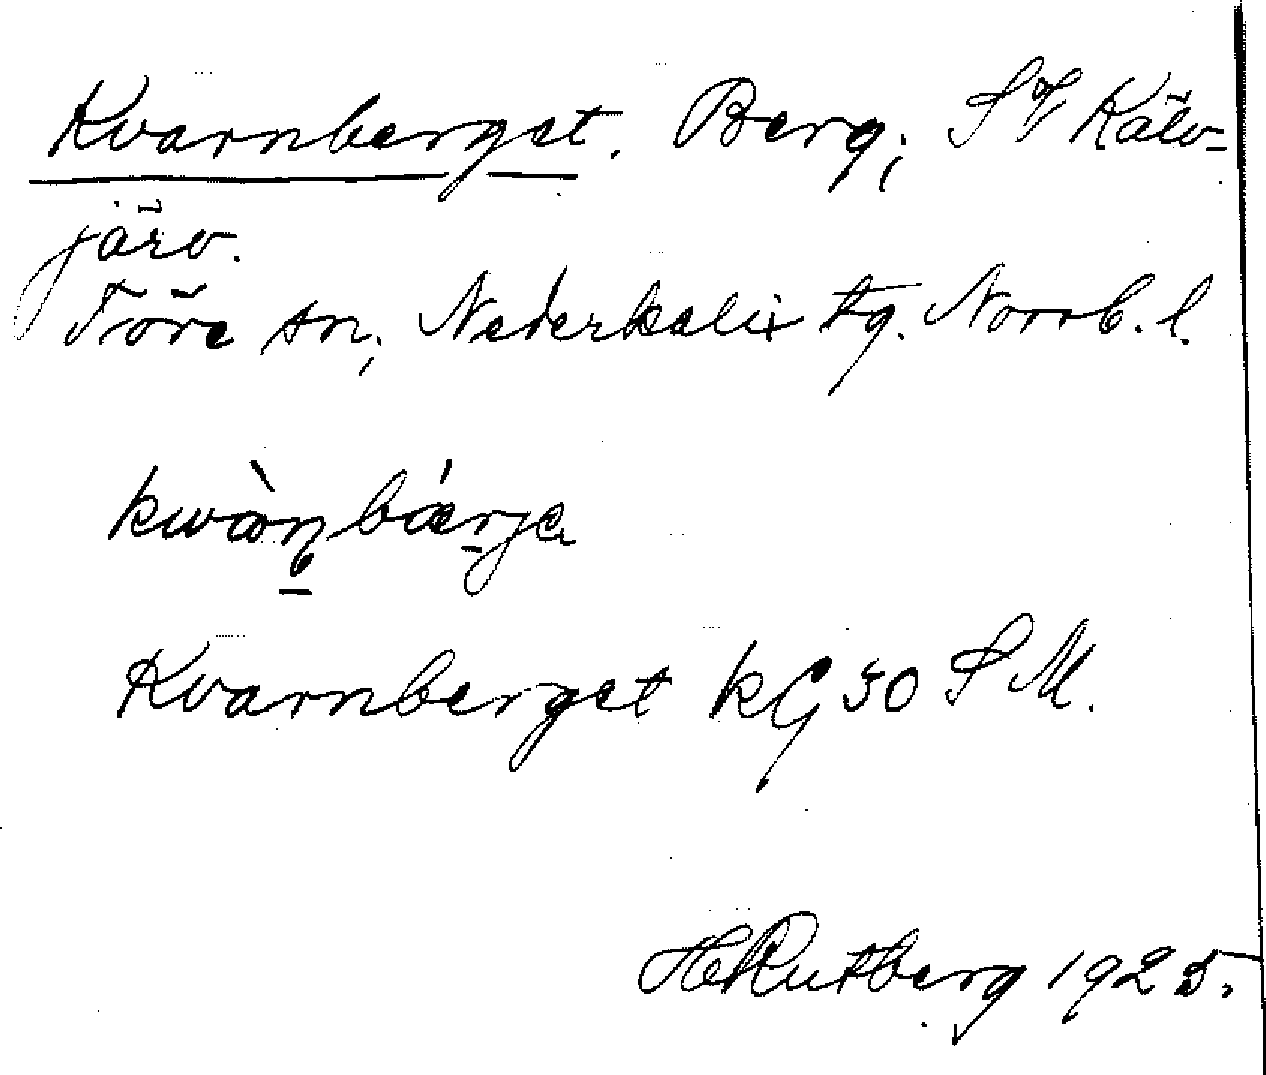 Kvarnberget. Berg; SV Kälv-
järv.
Töre sn; Nederkalix tg. Norrb. l.
kwàṇbærje
Kvarnberget kG 50 S M.
HRutberg 1925.